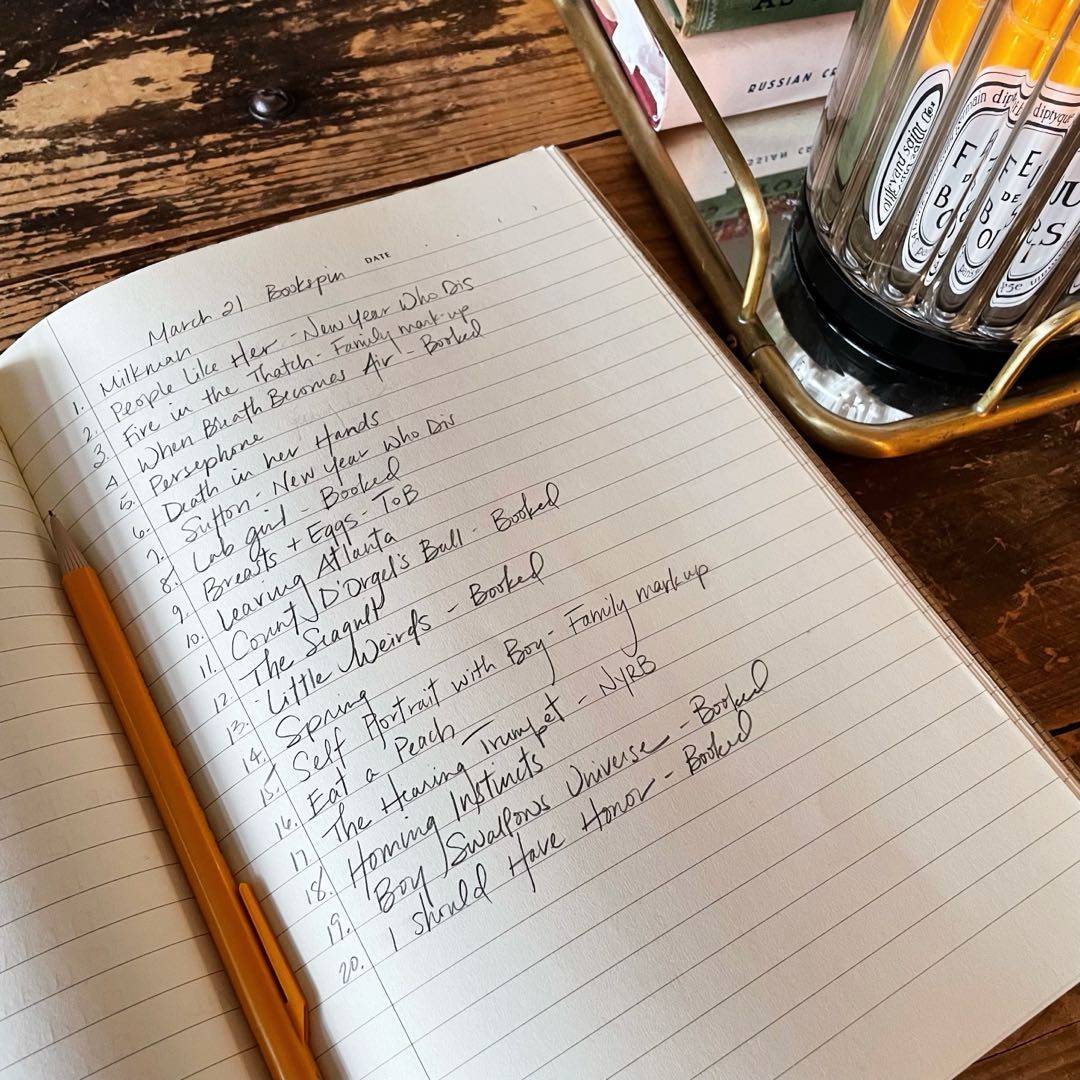 AS
RUSSIAN CR
DATE
March 21 Bookspin
1. Milkman
2. People Like Her - New Year Who Dis
3. Fire in the Thatch - Family mark-up
4. When Breath Becomes Air - Booked
5. Persephone
6. Death in her Hands
7. Sutton - New Year Who Dis
8. Lab girl - Booked
9. Breasts + Eggs - ToB
10. Leaving Atlanta
11. Count D'Orgel's Ball - Booked
12. The Seagull
13. Little Weirds - Booked
14. Spring
15. Self Portrait with Boy - Family markup
16. Eat a Peach
17. The Hearing Trumpet - NYRB
18. Homing Instincts
19. Boy Swallows Universe - Booked
20. I should Have Honor - Booked
diptyque
FEU
DE
BO